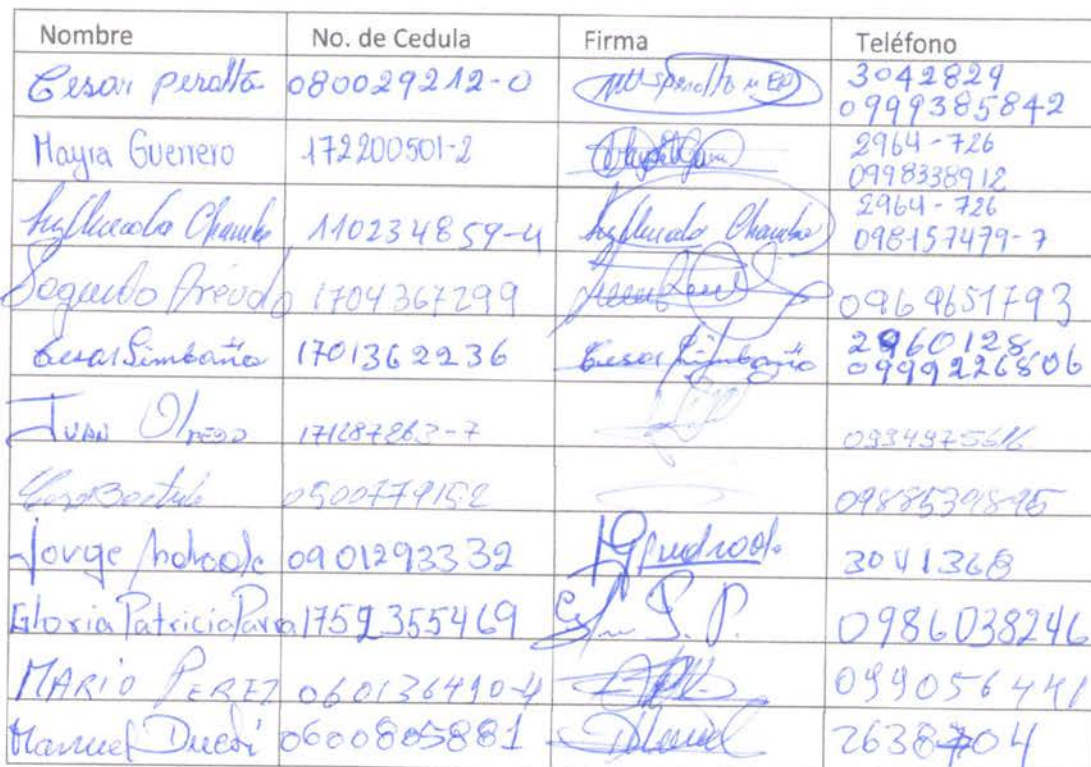 Nombre No. de Cedula Firma Teléfono
Cesar Peralta 080029212-0 3042829
0999385842
Mayra Guerrero 172200501-2 2964-726
0998338912
Chamba 110234859-4 Chamba 2964-726
098157479-7
Segundo Arévalo 1704367299 0969651793
Cesar Simbaña 1701362236 Cesar Simbaña 2960128
0999226806
Juan Olmedo 171287263-7
0500779152
Jorge Andrade 0901293332 Andrade 3041368
Gloria Patricia Parra 1759355469 P. P. 0986038246
MARIO PEREZ 060136490-4 0990564441
Manuel Duchi 0600805881 Manuel 2638704